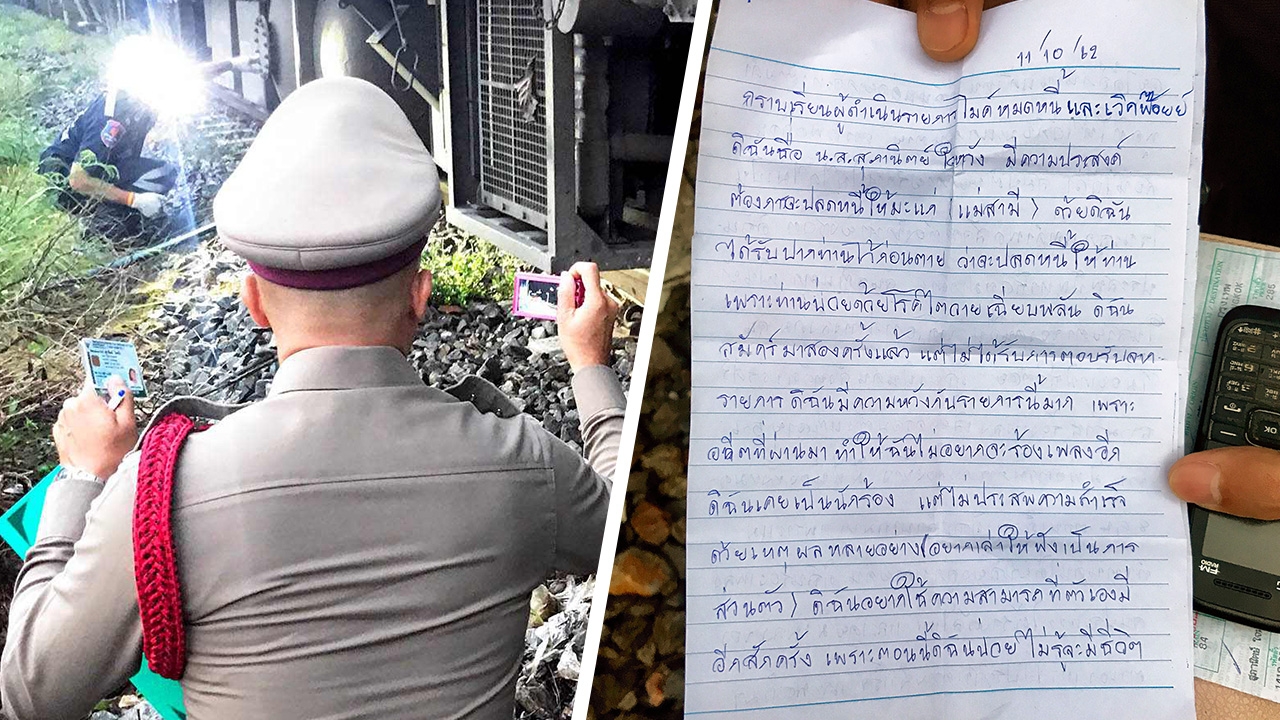 11/10/62
กราบเรียนผู้ดำเนินรายการไมค์หมดหนี้ และเวิคพ้อยย์
ดิฉันชื่อ น.ส.สุภานิตย์ ใจหวัง มีความประสงค์
ต้องการจะปลดหนี้ให้มะแก่ (แม่สามี) ด้วยดิฉัน
ได้รับปากท่านไว้ก่อนตาย ว่าจะปลดหนี้ให้ท่าน
เพราะท่านป่วยด้วยโรคไตวายเฉียบพลัน ดิฉัน
สมัครมาสองครั้งแล้ว แต่ไม่ได้รับการตอบรับจาก
รายการ ดิฉันมีความหวังกับรายการนี้มาก เพราะ
อดีตที่ผ่านมา ทำให้ฉันไม่อยากจะร้องเพลงอีก
ดิฉันเคยเป็นนักร้อง แต่ไม่ประสพความสำเร็จ
ด้วยเหตุผลหลายอย่าง (อยากเล่าให้ฟังเป็นการ
ส่วนตัว) ดิฉันอยากใช้ความสามารถที่ตัวเองมี
อีกสักครั้ง เพราะตอนนี้ดิฉันป่วย ไม่รู้จะมีชีวิต
OK
FM
RADIO